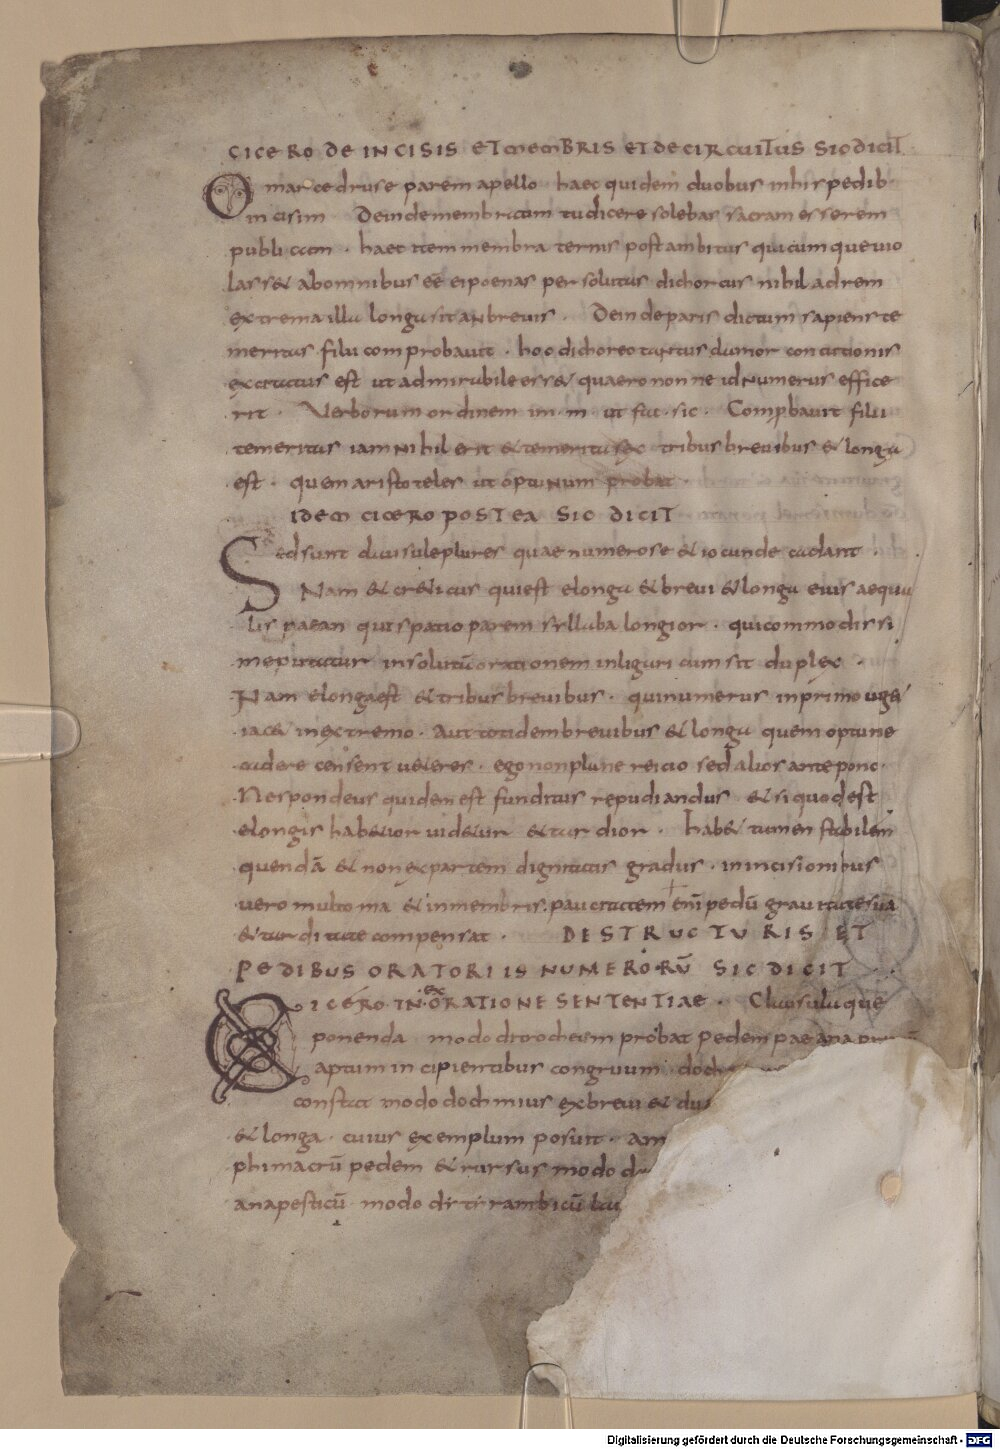 CICERO DE INCISIS ET MEMBRIS ET DE CIRCUITUS SIC DICIT
O marce druse parem apello haec quidem duobus inhis pedib
incisim Deinde membratim tu dicere solebas sacram esse rem
publicam · haec item membra ternis post ambitus quicum que vio
lass& ab omnibus eē ei poenas persolutas dichoreus nihil ad rem
extrema illa longa sit an brevis · Deinde patris dictum sapiens te
meritas filii comprobavit · hoc dichoreo tantus clamor contitionis
excitatus est ut admirabile ess& quaero nonne id numerus effice
rit · Verborum ordinem im · m · ut fac · sic · Compbavit filii
temeritas iam nihil erit & temeritas ex tribus brevibus & longa
est · quem aristoteles ut optumum probat
IDEM CICERO POSTEA SIC DICIT
Sed sunt clausule plures quae numerose & iocunde cadant ·
Nam & cr&icus qui est e longa & brevi & longa eius aequa
lis paean qui spatio parem syllaba longior · qui commodissi
me putatur in solutū orationem inligari cum sit duplex ·
Nam e longa est & tribus brevibus · qui numerus in primo vig&
iac& in extremo · Aut totidem brevibus & longa quem optume
cadere censent u&eres · ego non plane reicio sed alios antepono ·
Ne spondeus quidem est funditus repudiandus &si quod est
e longis hab&ior vid&ur & tardior · hab& tamen stabilem
quendā & non expartem dignitatis gradus · in incisionibus
vero multo ma & in membris paucitatem enī pedū gravitate sua
& tarditate compensat · DE STRUCTURIS ET
PEDIBUS ORATORIIS NUMERORŪ SIC DICIT
CICERO IN ORATIONE SENTENTIAE · Clausula que
ponenda modo ditrocheum probat pedem paeana
aptum incipientibus congruum ·
constat modo dochmius ex brevi &
& longa · cuius exemplum posuit ·
phimacrū pedem & rursus modo
anapesticū modo dirtirambicū